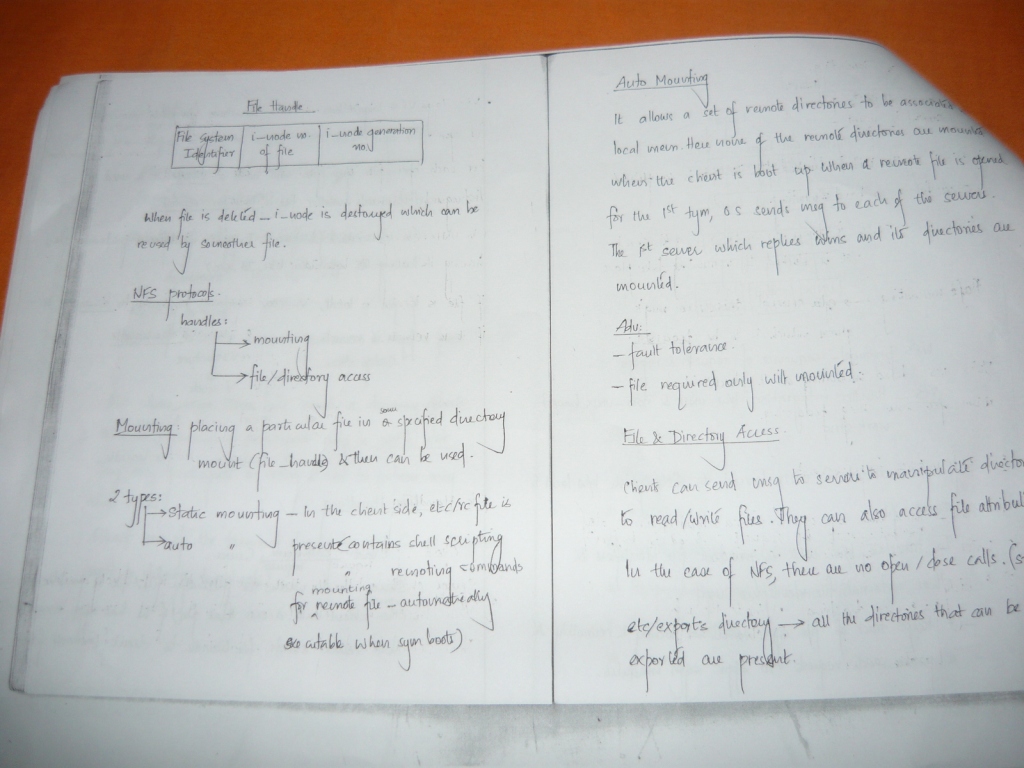 File Handle
File System
Identifier
i-node no.
of file
i-node generation
no.
When file is deleted - i-node is destroyed which can be
reused by somoother file.
NFS protocols.
handles:
→ mounting
→ file/directory access
Mounting: placing a particular file in some specified directory
mount (file_handle) & then can be used.
2 types:
→ Static mounting - In the client side, etc/rc file is
→ auto " present (contains shell scripting
remoting commands
for mounting remote file - automatically
executable when sym boots).
Auto Mounting
It allows a set of remote directories to be
local main. Here none of the remote directories are
when the client is boot up. When a remote file is opened
for the 1st tym, OS sends msg to each of the servers.
The 1st server which replies wins and its directories are
mounted.
Adv:
- fault tolerance
- file required only will mounted.
File & Directory Access.
Clients can send msg to server to manipulate
to read/write files. They can also access file
In the case of NFS, there are no open/close calls.
etc/exports directory → all the directories that can be
exported are present.